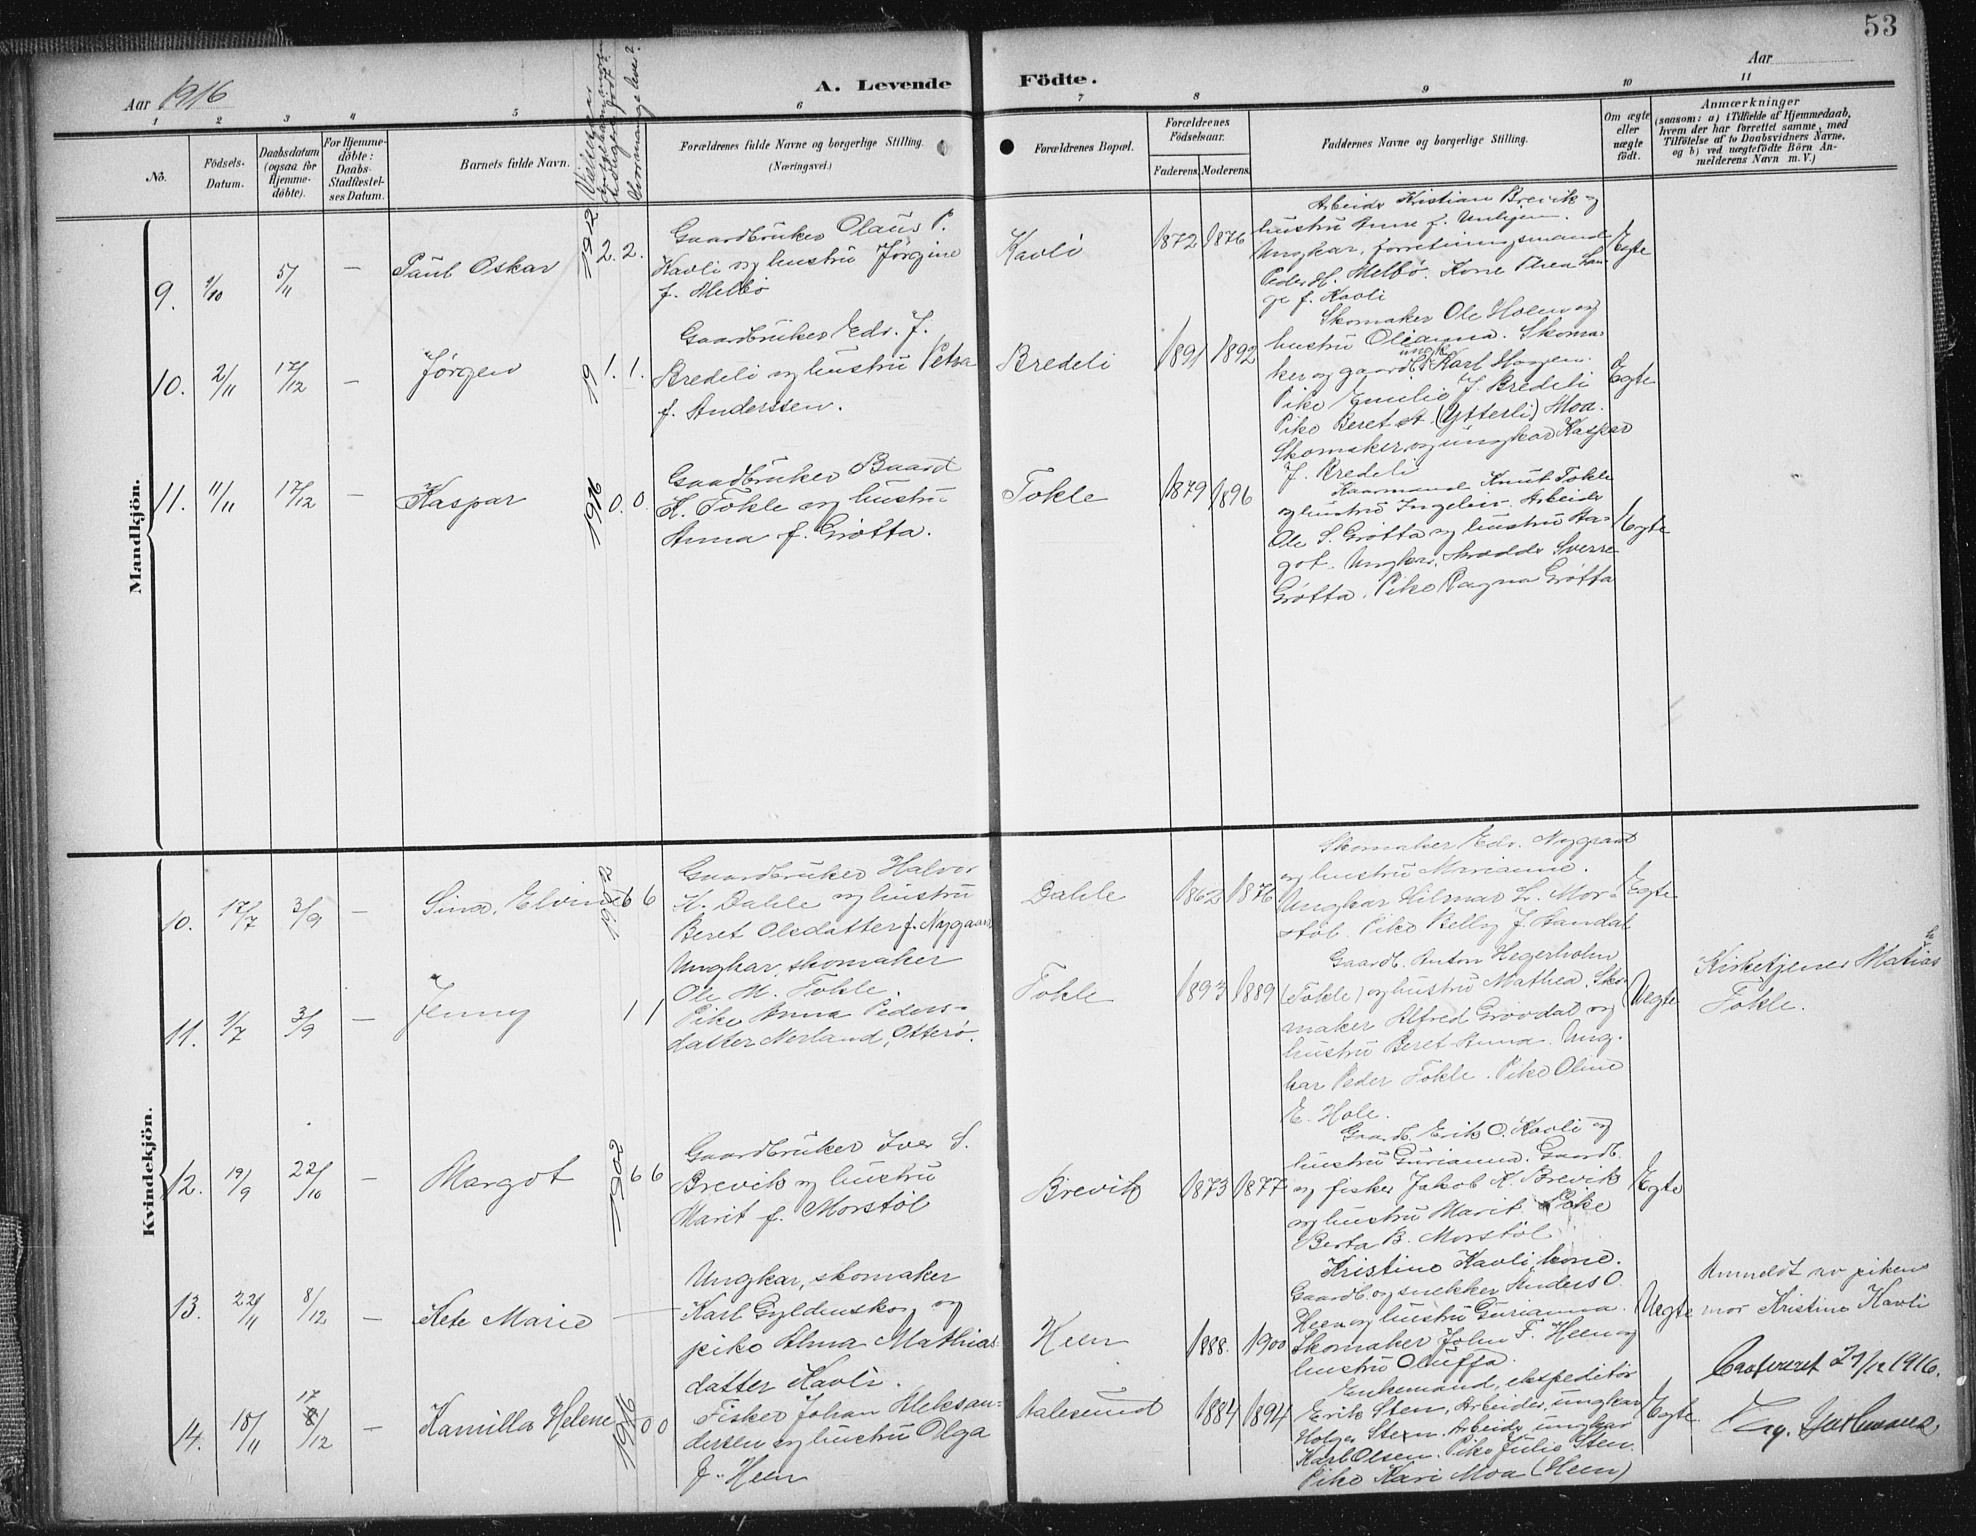 53
Aar 1916
A. Levende Födte.
Aar
1 2 3 4 5 6 7 8 9 10 11
No.
Födsels-Datum.
Daabsdatum (ogsaa for Hjemme-döbte).
For Hjemme-döbte: Daabs-Stadfæstel-ses Datum.
Barnets fulde Navn.
Forældrenes fulde Navne og borgerlige Stilling.
(Næringsvei.)
Forældrenes Bopæl.
Forældrenes Födselsaar.
Faderens. Moderens.
Faddernes Navne og borgerlige Stilling.
Om ægte eller uægte födt.
Anmærkninger
(saasom: a) i Tilfælde af Hjemmedaab,
hvem der har forrettet samme, med
Tilföielse af to Daabsvidners Navne,
og b) ved uægtefödte Börn An-
melderens Navn m. V.)
Mandkjön.
9. 1/10 5/11 —
Paul Oskar
1912 2. 2.
Gaardbruker Olaus P.
Kavli og hustru Jørgine
f. Melbø
Kavli
1872 1876
Arbeider Kristian Brevik og
hustru Anne f.
Ungkar, forretningsmand
Peder H. Melbø. Kone Thea Lan-
ge f. Kavli
Egte
10. 2/11 17/12 —
Jørgen
19 1. 1.
Gaardbruker Edv. J.
Bredeli og hustru Petra
f. Anderssen.
Bredeli
1891 1892
Skomaker Ole Holen og
hustru Oleanna. Skoma-
ungk.
ker og gaardb. Karl Hagen.
Pike Emilie J. Bredeli
Pike Beret A. (Ytterli) Moa.
Skomaker og ungkar Kaspar
J. Bredeli
Egte
11. 11/11 17/12 —
Kaspar
1916 0. 0.
Gaardbruker Baard
K. Tokle og hustru
Anna f. Grøtta.
Tokle
1879 1896
Kaarmand Knut Tokle
og hustru Ingeleiv. Arbeider
Ole S. Grøtta og hustru Ma-
got. Ungkar, skrædder Sverre
Grøtta. Pike Ragna Grøtta
Egte
Kvindekjön.
10. 17/7 3/9 —
Sina Elvine
1902 6 6
Gaardbruker Halvor
K. Dahle og hustru
Beret Olsdatter f. Nygaard
Dahle
1862 1876
Skomaker Edv. Nygaard
og hustru Marianne.
Ungkar Hilmar L. Mor-
støl. Pike Belly J. Standal
Egte
11. 1/7 3/9 —
Jenny
1 1
Ungkar, skomaker
Ole M. Tokle.
Pike Anna Peders-
datter Nerland, Otterø.
Tokle
1893 1889
Gaardb. Anton Hegerholm
(Tokle) og hustru Mathea. Sko-
maker Alfred Grovdal og
hustru Beret Anna. Ung-
kar Peder Tokle. Pike Oline
E. Hole.
Uegte
Kirketjener Matias
Tokle.
12. 19/9 22/10 —
Margot
1902 6 6
Gaardbruker Iver S.
Brevik og hustru
Marit f. Morstøl
Brevik
1873 1877
Gaardb. Erik O. Kavli og
hustru Gurianna. Gaardb.
og fisker Jakob K. Brevik
og hustru Marit. Pike
Berta B. Morstøl
Egte
13. 22/11 8/12 —
Kete Marie
—
Ungkar, skomaker
Karl Gyldenskog og
pike Alma Mathias-
datter Kavli.
Heen
1888. 1900
Kristine Kavli, kone.
Gaardb. og snekker Anders O.
Heen og hustru Gurianna.
Skomaker John T. Heen og
hustru Oluffa.
Uegte
Anmeldt av pikens
mor Kristine Kavli
14. 18/11 17/12 —
Kamilla Helene
1916 0 0
Fisker Johan Aleksan-
dersen og hustru Olga
f. Heen
Aalesund
1884 1894
Enkemand, ekspeditør
Erik Sten, Arbeider, ungkar
Holger Sten. Arbeider, ungkar
Karl Olsen. Pike Julie Sten.
Pike Kari Moa (Heen)
Egte
1916.